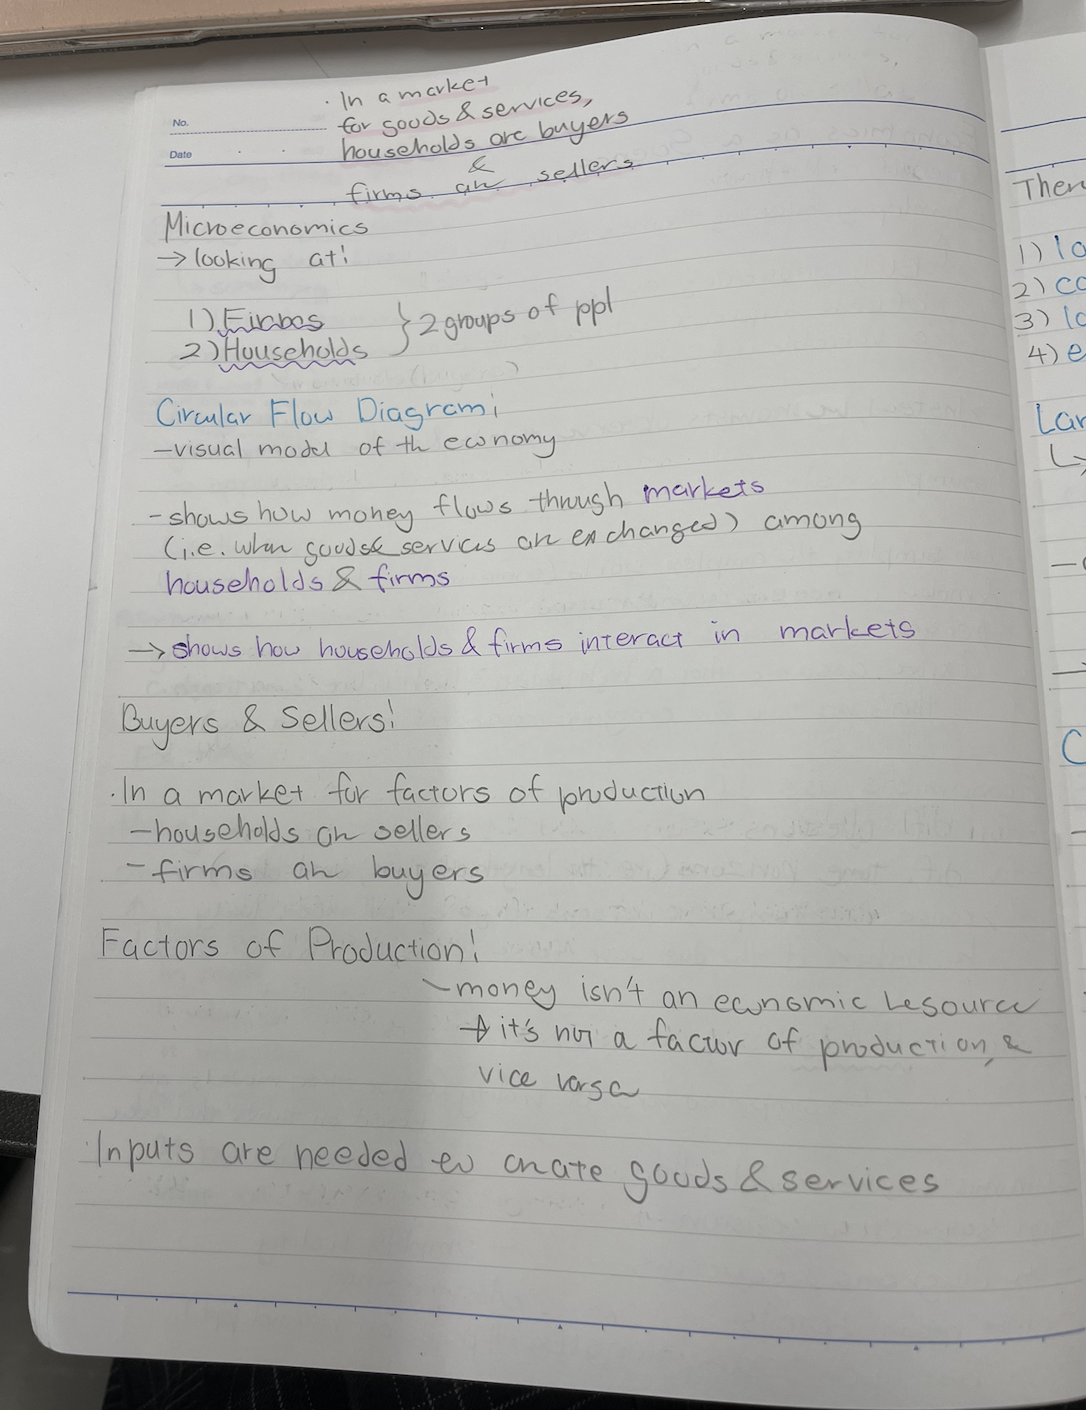 · In a market
for goods & services,
households are buyers
&
firms are sellers
No.
Date
Microeconomics
→ looking at:
1) Firms
2) Households } 2 groups of ppl
Circular Flow Diagram:
- visual model of the economy
- shows how money flows through markets
(i.e. when goods & services are exchanged) among
households & firms
→ shows how households & firms interact in markets
Buyers & Sellers:
· In a market for factors of production
- households are sellers
- firms are buyers
Factors of Production:
- money isn't an economic resource
→ it's not a factor of production, &
vice versa
· Inputs are needed to create goods & services
Ther
1) la
2) ca
3) la
4) e
Lan
C